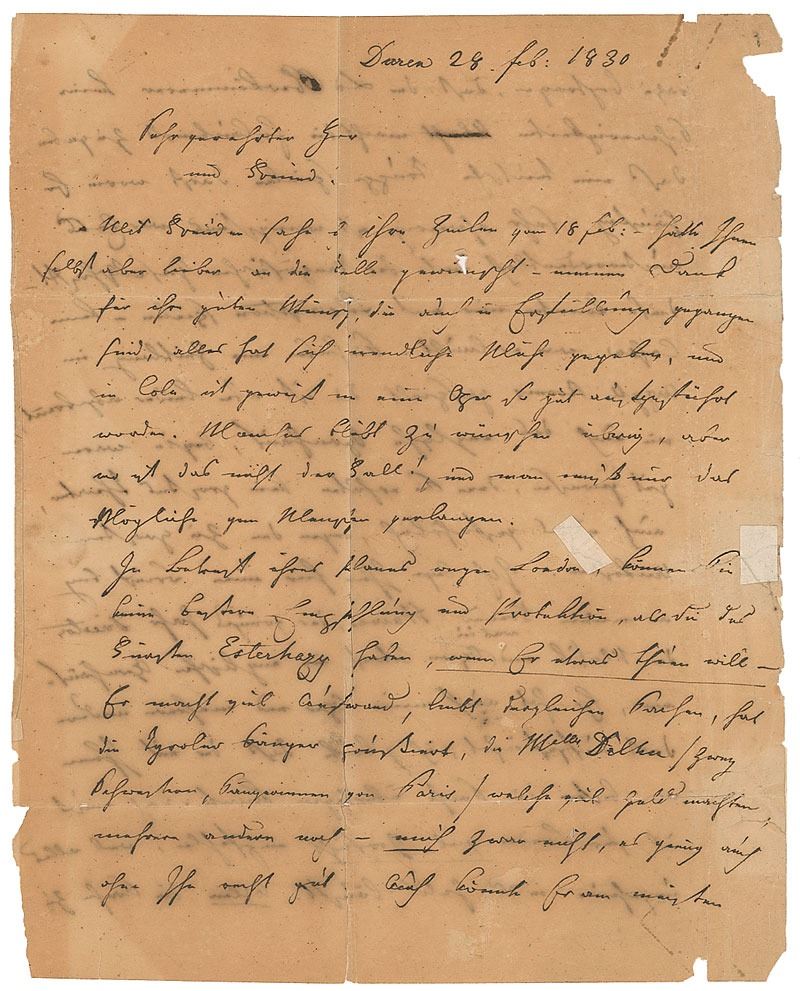 Düren 28 feb: 1830
Sehr geehrter Herr
und Freund.
Mit Freuden sahe i ihre Zeilen vom 18 feb: – hätte Ihnen
selbst aber lieber an die Stelle gewünscht – meinen Dank
für ihre guten Wünsche, die auch in Erfüllung gegangen
sind, alles hat sich unendliche Mühe gegeben, und
in Cöln ist gewiß nie eine Oper so gut ausgeführt
worden. Manches bleibt zu wünschen übrig, aber
wo ist das nicht der Fall!, und man muß nur das
Mögliche von Menschen verlangen.
In Betreff ihres Planes wegen London, können Sie
keine bessere Empfehlung und Protektion, als die des
Fürsten Esterhazy haben, wenn Er etwas thuen will –
Er macht viel Aufwand, liebt dergleichen Sachen, hat
die Tyroler Sänger poussiert, die Melles (zwey
Schwestern, Sängerinnen von Paris) welche viel Geld machten,
mehrere andere noch – mich zwar nicht, es gieng auch
ohne Ihn recht gut. Auch könnte Er am meisten